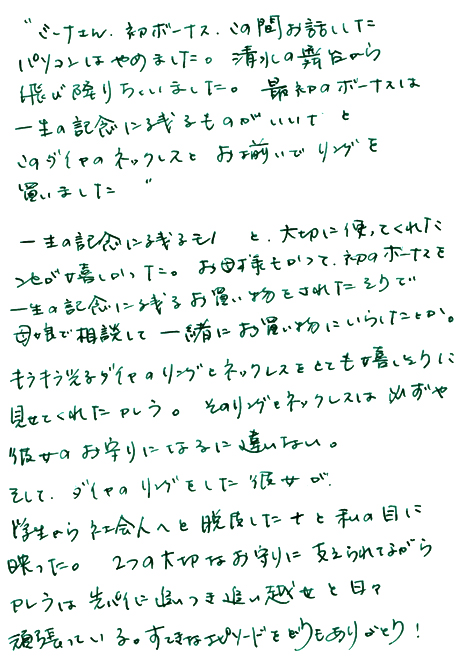 "ミーナさん、初ボーナス、この間お話しした
パソコンはやめました。清水の舞台から
飛び降りちゃいました。最初のボーナスは
一生の記念に残るものがいいナと
このダイヤのネックレスとお揃いでリングを
買いました"
一生の記念に残るモノと、大切に使ってくれた
ことが嬉しかった。お母様もかつて、初のボーナスを
一生の記念に残るお買い物をされたそうで
母娘で相談して一緒にお買い物にいらしたとか。
キラキラ光るダイヤのリングとネックレスをとても嬉しそうに
見せてくれたアレう。そのリングとネックレスは必ずや
彼女のお守りになるに違いない。
そして、ダイヤのリングをした彼女が、
学生から社会人へと脱皮したナと私の目に
映った。2つの大切なお守りに支えられてながら
アレうは先パイに追いつき追い越せと日々
頑張っている。すてきなエピソードをどうもありがとう!